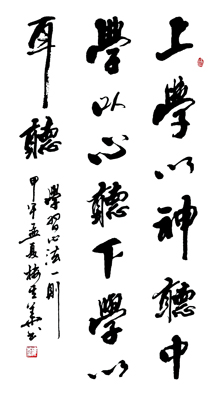 上學以神聽中
學以心聽下學以
耳聽
學習心法一則
甲午孟夏梅生美書